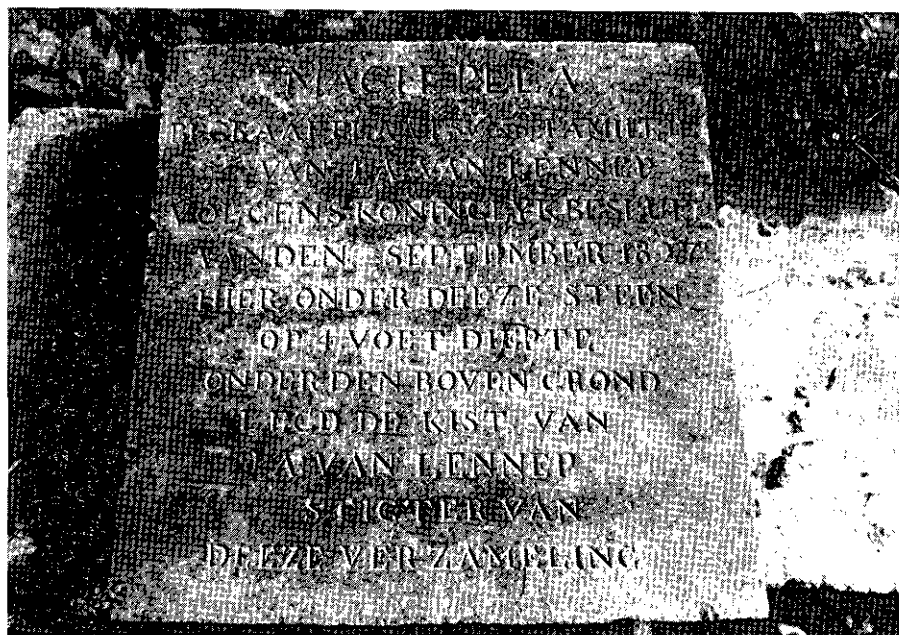 MACHPELA
BEGRAAFPLAATS FAMILIE
VAN J.A. VAN LENNEP
VOLGENS KONINGLYK BESLUIT
VAN DEN SEPTEMBER
HIER ONDER DEEZE STEEN
OP 4 VOET DIEPTE
ONDER DEN BOVEN GROND
LEGD DE KIST VAN
J A VAN LENNEP
STIGTER VAN
DEEZE VERZAMELING